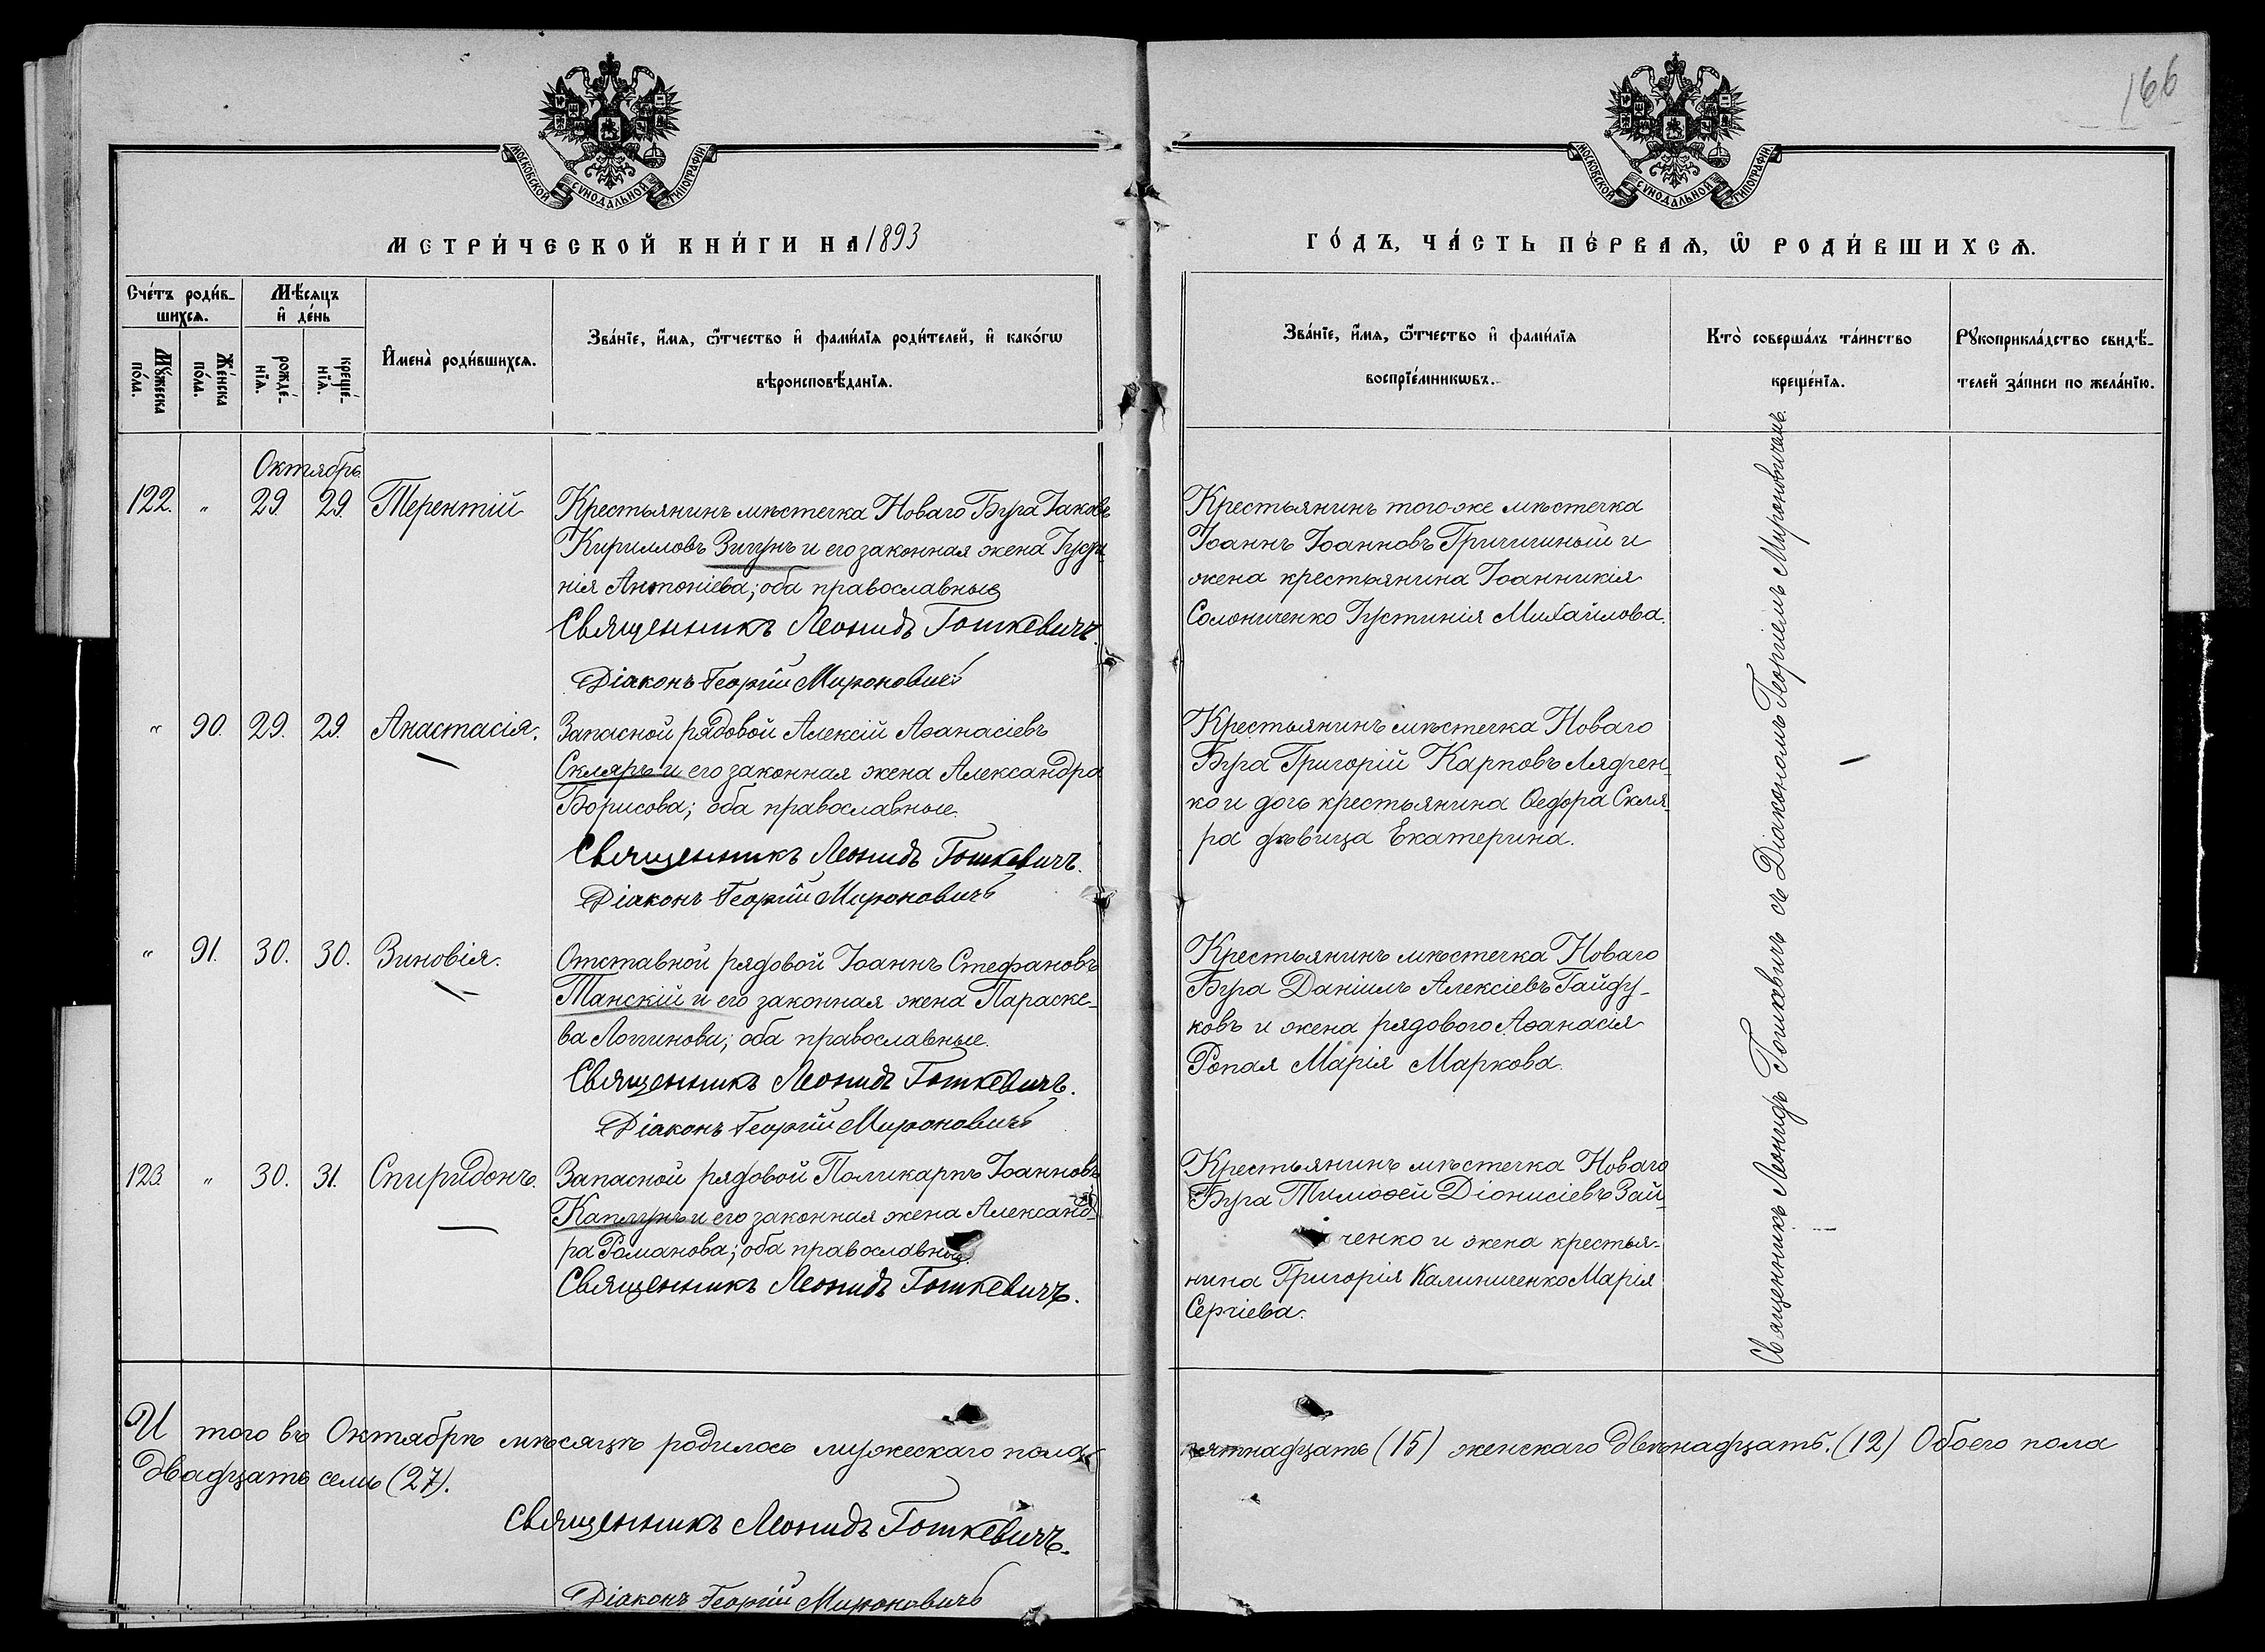 166
МОСКОВСКОЙ СѴНОДАЛЬНОЙ ТИПОГРАФІИ
МОСКОВСКОЙ СѴНОДАЛЬНОЙ ТИПОГРАФІИ
МЕТРИ́ЧЕСКОЙ КНИ́ГИ НА 1893
ГО́ДЪ, ЧА́СТЬ ПЕ́РВАѦ, Ѡ҆ РОДИ́ВШИХСѦ.
Сче́тъ роди́в-
шихсѧ.
Му́жеска
по́ла.
Же́нска
по́ла.
Мѣ́сѧцъ
и҆ де́нь
рожде́-
нїѧ.
креще́-
нїѧ.
И҆мена̀ роди́вшихсѧ.
Зва́нїе, и҆́мѧ, ѻ҆́тчество и҆ фами́лїѧ роди́телей, и҆ како́гѡ
вѣроисповѣ́данїѧ.
Зва́нїе, и҆́мѧ, ѻ҆́тчество и҆ фами́лїѧ
воспрїе́мникѡвъ.
Кто̀ соверша́лъ та́инство
креще́нїѧ.
Рꙋкоприкла́дство свидѣ́-
телей за́писи по жела́нїю.
Октябрь
122. " 29. 29. Терентій
Крестьянинъ мѣстечка Новаго Буга Іаковъ
Кирилловъ Зигунъ и его законная жена Іусти
нія Антоніева; оба православные
Священникъ Леонидъ Гошкевичъ.
Діаконъ Георгій Мироновичъ
Крестьянинъ того-же мѣстечка
Іоаннъ Іоанновъ и
жена крестьянина Іоанникія
Солониченко Іустинія Михайлова.
" 90. 29. 29. Анастасія.
Запасной рядовой Алексій Аѳанасіевъ
Скляръ и его законная жена Александра
Борисова; оба православные.
Священникъ Леонидъ Гошкевичъ.
Діаконъ Георгій Мироновичъ
Крестьянинъ мѣстечка Новаго
Буга Григорій Карповъ Лядчен-
ко и дочь крестьянина Ѳедора Скля-
ра дѣвица Екатерина.
" 91. 30. 30. Зиновія.
Отставной рядовой Іоаннъ Стефановъ
Танскій и его законная жена Параске-
ва Логгинова; оба православные.
Священникъ Леонидъ Гошкевичъ.
Діаконъ Георгій Мироновичъ
Крестьянинъ мѣстечка Новаго
Буга Даніилъ Алексіевъ Гайду-
ковъ и жена рядового Аѳанасія
Ропая Марія Маркова.
123. " 30. 31. Спиридонъ.
Запасной рядовой Поликарпъ Іоанновъ
Каплунъ и его законная жена Александ-
ра Романова; оба православные.
Священникъ Леонидъ Гошкевичъ.
Крестьянинъ мѣстечка Новаго
Буга Тимоѳей Діонисіевъ Зай-
ченко и жена крестья-
нина Григорія Калиниченко Марія
Сергіева.
Священникъ Леонидъ Гошкевичъ съ Діакономъ Георгіемъ Мироновичемъ.
И того въ Октябрѣ мѣсяцѣ родилось мужескаго пола пятнадцать (15) женскаго двѣнадцать. (12) Обоего пола
двадцать семь (27).
Священникъ Леонидъ Гошкевичъ.
Діаконъ Георгій Мироновичъ